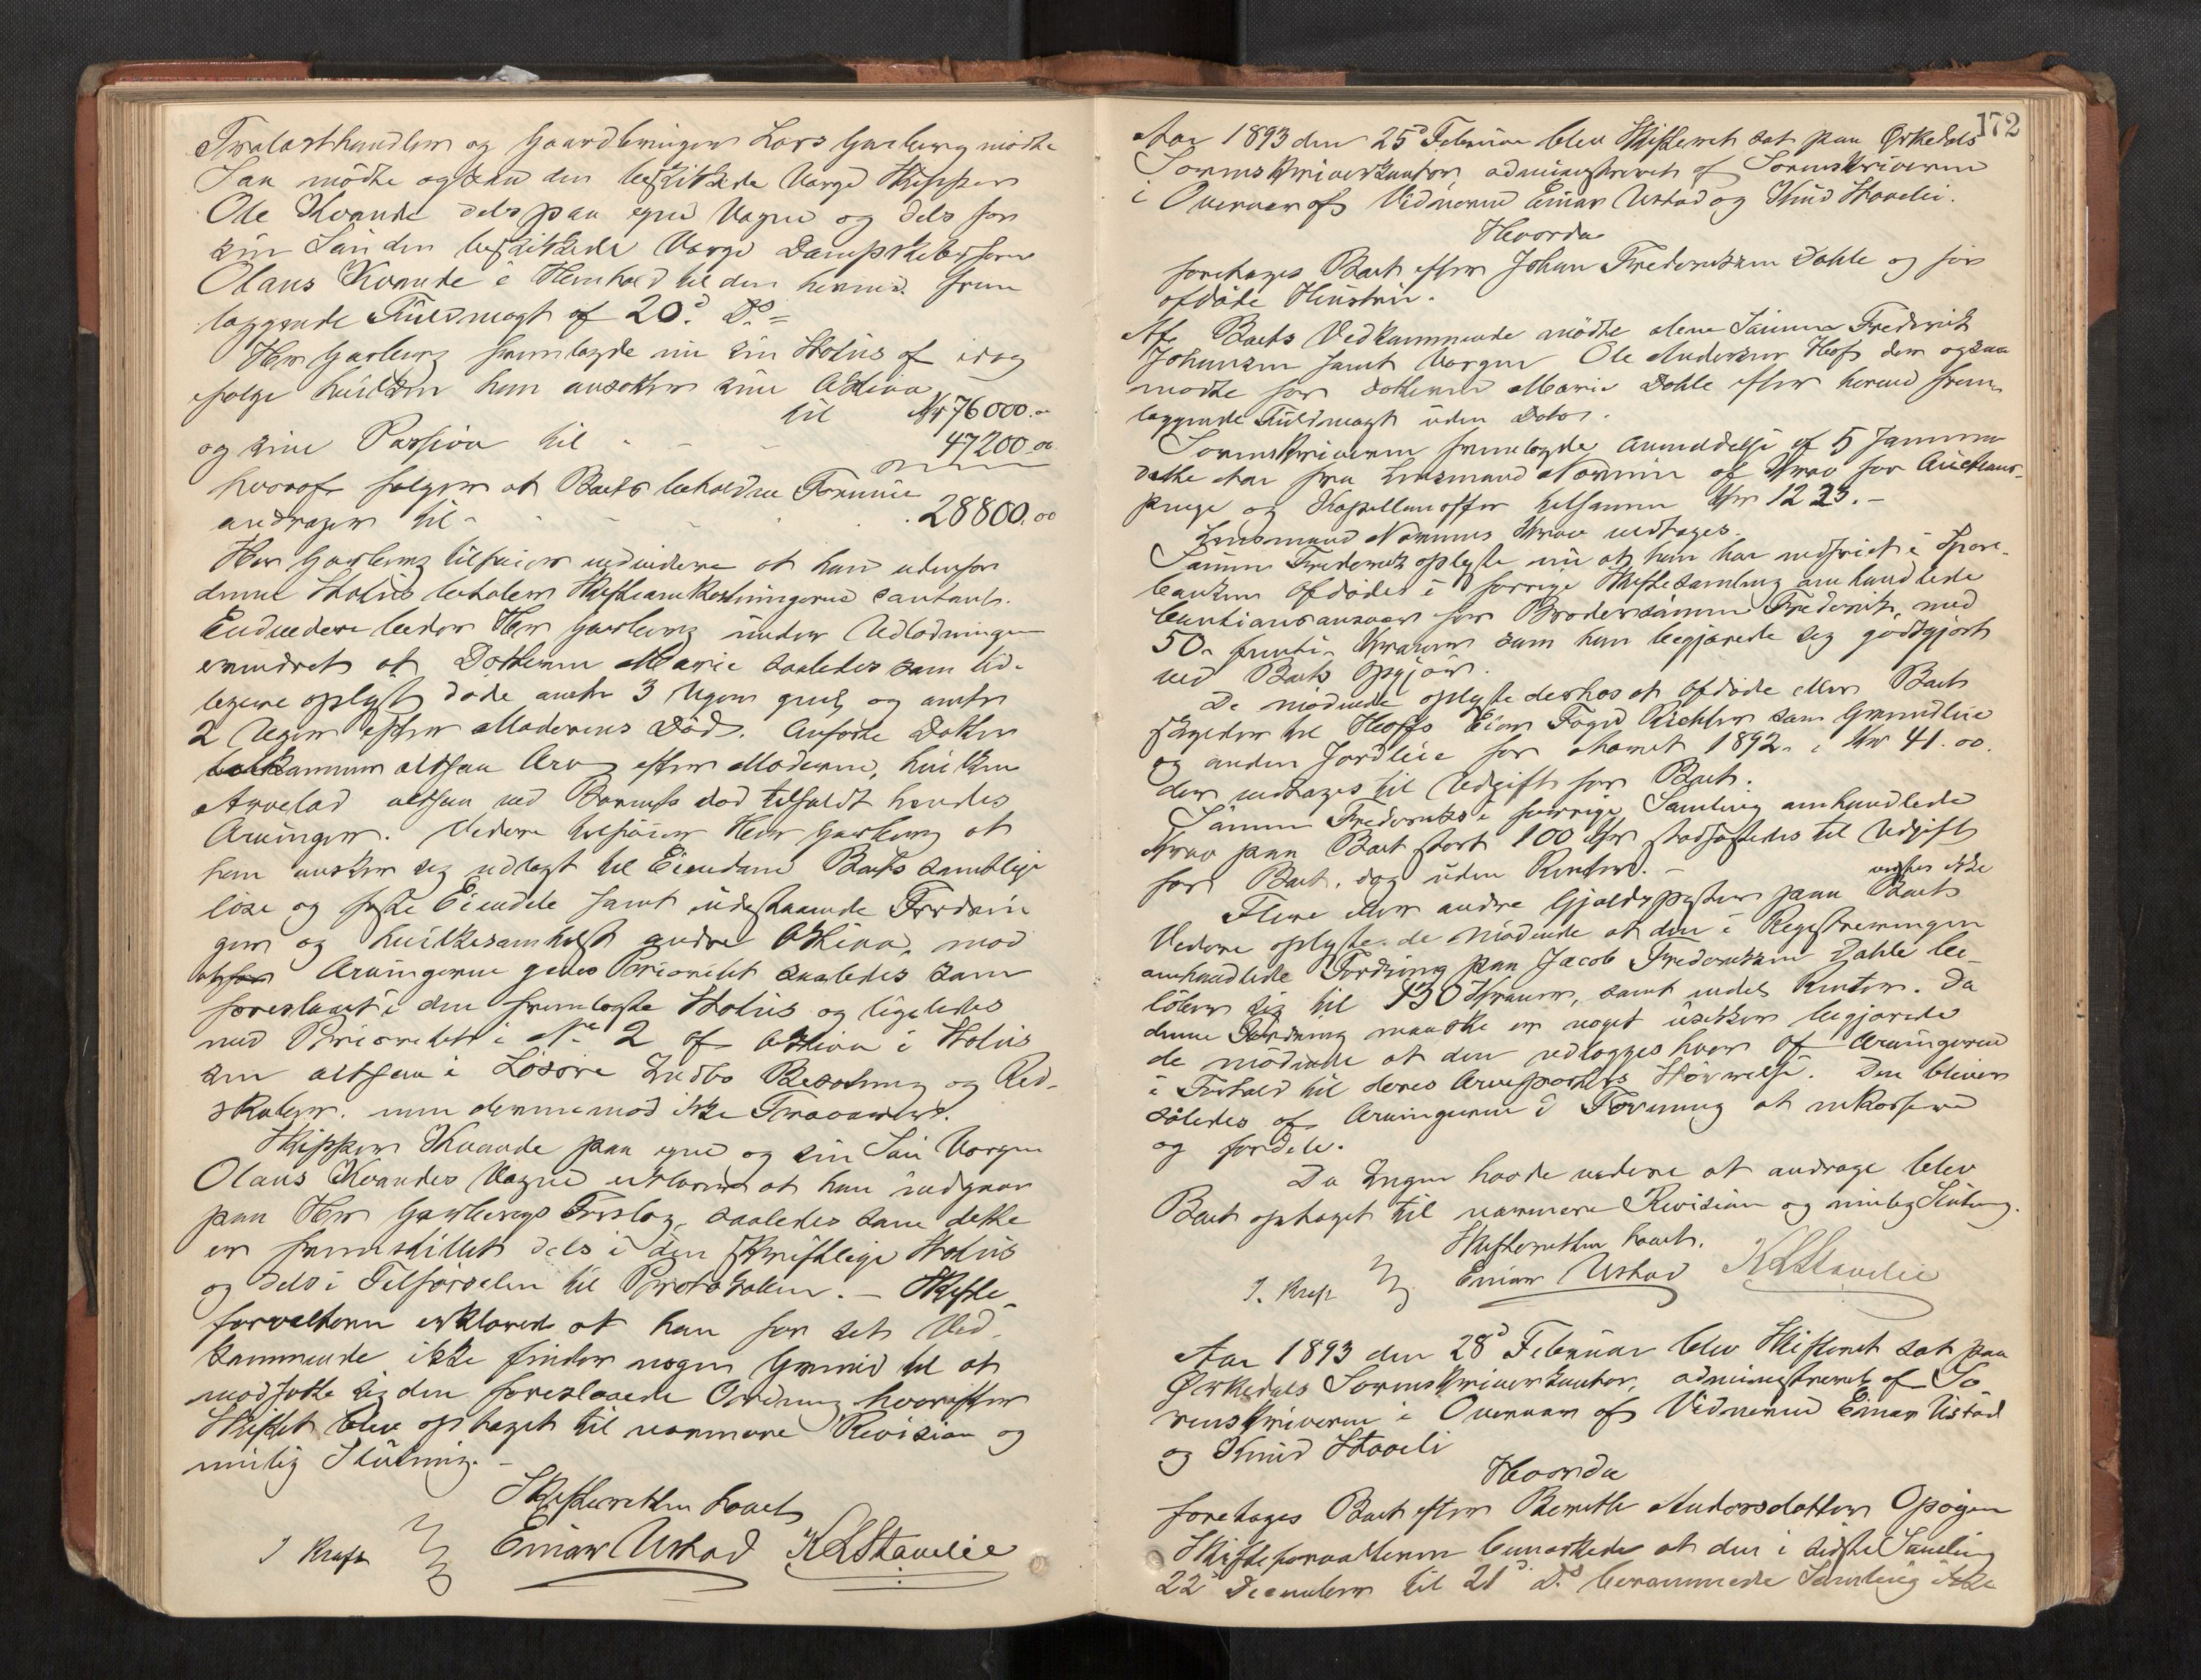 Trælasthandler og Gaardbruger Lars Garberg mødte
Saa mødte ogsaa den beskikkede Værge Skipper
Ole Kvande dels paa egne Vegne og dels for
sin Søn den beskikkede Værge Dampskibsfører
Olaus Kvande i Henhold til den herved frem
læggende Fuldmagt af 20d Ds =
Herr Garberg fremlagde nu sin Status af idag
ifølge hvilken han ansætter sine Aktiva
til Kr 76000.00
og sine Passiva til - - - 47200.00
hvoraf følger at Boets beholdne Formue
andrager til - - - - 28800.00
Herr Garberg tilføier endvidere at han udenfor
denne Status betaler Skifteomkostningerne contant.
Endvidere beder Herr Garberg under Udlodningen
erindret at Datteren Marie saaledes som tid-
ligere oplyst døde omtr 3 Uger gml, og omtr
2 Uger efter Moderens Død. Anførte Datter
tilkommer altsaa Arv efter Moderen, hvilken
Arvelod altsaa ved Barnets død tilfaldt hendes
Arvinger. Videre tilføier Herr Garberg at
han ønsker sig udlagt til Eiendom Boets samtlige
løse og faste Eiendele samt udestaaende Fordrin
ger og hvilkesomhelst andre Aktiva, mod
at Arvingerne gives Prioritet saaledes som
foreslaaet i den fremlagte Status og ligeledes
med Prioritet i No 2 af Aktiva i Status
sin altsaa i Løsøre Indbo Besætning og Red-
skaber. men derimod ikke Trævarer.
Skipper Kvande paa egne og sin Søn Værgen
Olaus Kvandes Vegne erklærede at han indgaar
paa Herr Garbergs Forslag, saaledes som dette
er fremstillet dels i den skriftlige Status
og dels i Tilførselen til Protokollen. - Skifte-
forvalteren erklærede at han for sit Ved-
kommende ikke finder nogen Grund til at
modsætte sig den foreslaaede Ordning hvorefter
Skiftet blev optaget til nærmere Revision og
mulig Slutning. -
Skifteretten hævet
J Kraft Einar Ustad K L Stavelie
172
Aar 1893 den 25d Februar blev Skifteret sat paa Ørkedals
Sorenskriverkontor, administreret af Sorenskriveren
i Overvær af Vidnerne Einar Ustad og Knud Stavelie.
Hvorda
foretages Boet efter Johan Frederiksen Dahle og før
afdøde Hustru.
Af Boets Vedkommende mødte alene Sønnen Frederik
Johansen samt Værgen Ole Andersen Hoff der ogsaa
mødte for Datteren Marie Dahle efter herved frem-
læggende Fuldmagt uden Dato.
Sorenskriveren fremlagde Anmeldelse af 5 Januar
dette Aar fra Lensmand Norman af Krav for Auctions-
penge og Kapellanoffer tilsammen Kr 12 23. -
Lensmand Normans Krav vedtages.
Sønnen Frederik oplyste nu at han har indfriet i Spare-
banken Afdødes i forrige Skiftesamling omhandlede
Cautionsansvar for Brodersønnen Frederik med
50 - femti - Kroner som han begjærede sig godtgjort
ved Boets Opgjør.
De mødende oplyste derhos at Afdøde eller Boet
skylder til Hoffs Eier Foged Richter som Grundleie
og anden Jordleie for Aaret 1892 - Kr 41.00.
der vedtages til Udgift for Boet.
Sønnen Frederiks i forrige Samling omhandlede
Krav paa Boet stort 100 Kr stadfæstedes til Udgift
for Boet, dog uden Renter. -
Flere eller andre Gjældsposter paa Boet
vides ikke
Videre oplyste de mødende at den i Registreringen
omhandlede Fordring paa Jacob Frederiksen Dahle be-
løber sig til 130 Kroner, samt endel Renter. Da
denne Fordring maaske er noget usikker begjærede
de mødende at den udlægges hver af Arvingerne
i Forhold til deres Arveparters Størrelse. Den bliver
saaledes af Arvingerne i Forening at inkassere
og fordele.
Da Ingen havde videre at andrage blev
Boet optaget til nærmere Revision og mulig Slutning.
Skifteretten hævet.
J. Kraft Einar Ustad K L Stavelie
Aar 1893 den 28d Februar blev Skifteret sat paa
Ørkedals Sorenskriverkontor, administreret af So
renskriveren i Overvær af Vidnerne Einar Ustad
og Knud Staveli
Hvorda
foretages Boet efter Berethe Andersdatter Opøien
Skifteforvalteren bemærkede at den i sidste Samling
22 December til 21d Ds berammede Samling ikke